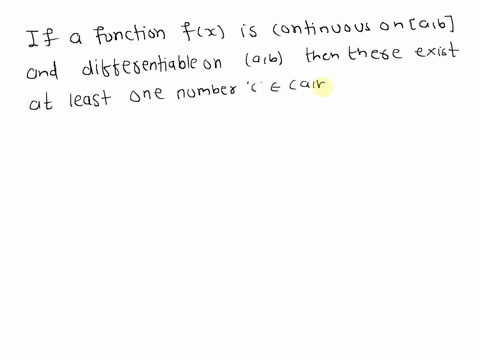 If a function f(x) is continuous on [a,b]
and differentiable on (a,b) then there exist
at least one number 'c' ∈ (a,b